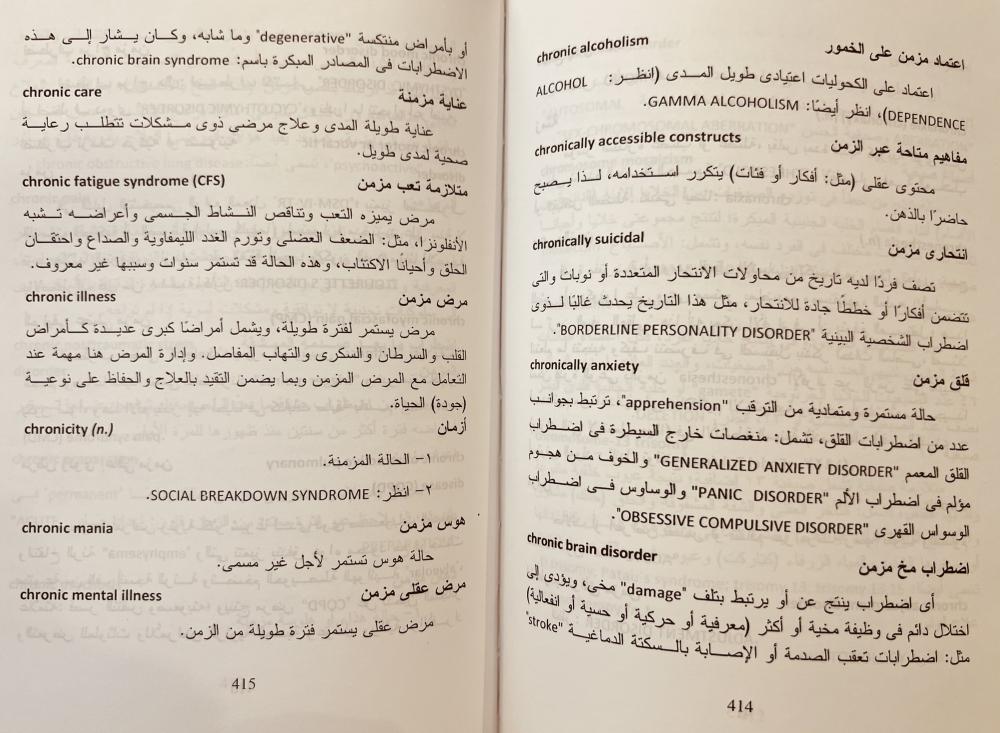 chronic alcoholism اعتماد مزمن على الخمور
اعتماد على الكحوليات اعتيادى طويل المدى (انظر: ALCOHOL
DEPENDENCE)، انظر أيضًا: GAMMA ALCOHOLISM.
chronically accessible constructs مفاهيم متاحة عبر الزمن
محتوى عقلى (مثل: أفكار أو فئات) يتكرر استخدامه، لذا يصبح
حاضرًا بالذهن.
chronically suicidal انتحارى مزمن
تصف فردًا لديه تاريخ من محاولات الانتحار المتعددة أو نوبات والتى
تتضمن أفكارًا أو خططًا جادة للانتحار، مثل هذا التاريخ يحدث غالبًا لذوى
اضطراب الشخصية البينية "BORDERLINE PERSONALITY DISORDER".
chronically anxiety قلق مزمن
حالة مستمرة ومتمادية من الترقب "apprehension"، ترتبط بجوانب
عدد من اضطرابات القلق، تشمل: منغصات خارج السيطرة فى اضطراب
القلق المعمم "GENERALIZED ANXIETY DISORDER" والخوف من هجوم
مؤلم فى اضطراب الألم "PANIC DISORDER" والوساوس فى اضطراب
الوسواس القهرى "OBSESSIVE COMPULSIVE DISORDER".
chronic brain disorder اضطراب مخ مزمن
أى اضطراب ينتج عن أو يرتبط بتلف "damage" مخى، ويؤدى إلى
اختلال دائم فى وظيفة مخية أو أكثر (معرفية أو حركية أو حسية أو انفعالية)
مثل: اضطرابات تعقب الصدمة أو الإصابة بالسكتة الدماغية "stroke"
414
أو بأمراض منتكسة "degenerative" وما شابه، وكان يشار إلى هذه
الاضطرابات فى المصادر المبكرة باسم: chronic brain syndrome.
chronic care عناية مزمنة
عناية طويلة المدى وعلاج مرضى ذوى مشكلات تتطلب رعاية
صحية لمدى طويل.
chronic fatigue syndrome (CFS) متلازمة تعب مزمن
مرض يميزه التعب وتناقص النشاط الجسمى وأعراضه تشبه
الأنفلونزا، مثل: الضعف العضلى وتورم الغدد الليمفاوية والصداع واحتقان
الحلق وأحيانًا الاكتئاب، وهذه الحالة قد تستمر سنوات وسببها غير معروف.
chronic illness مرض مزمن
مرض يستمر لفترة طويلة، ويشمل أمراضًا كبرى عديدة كأمراض
القلب والسرطان والسكرى والتهاب المفاصل. وإدارة المرض هنا مهمة عند
التعامل مع المرض المزمن وبما يضمن التقيد بالعلاج والحفاظ على نوعية
(جودة) الحياة.
chronicity (n.) أزمان
١- الحالة المزمنة.
٢- انظر: SOCIAL BREAKDOWN SYNDROME.
chronic mania هوس مزمن
حالة هوس تستمر لأجل غير مسمى.
chronic mental illness مرض عقلى مزمن
مرض عقلى يستمر فترة طويلة من الزمن.
415